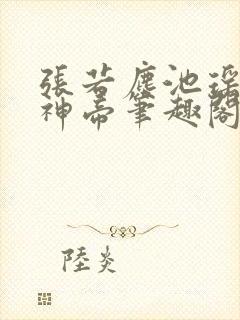 張若塵池瑤
神帝筆趣閣
陸炎